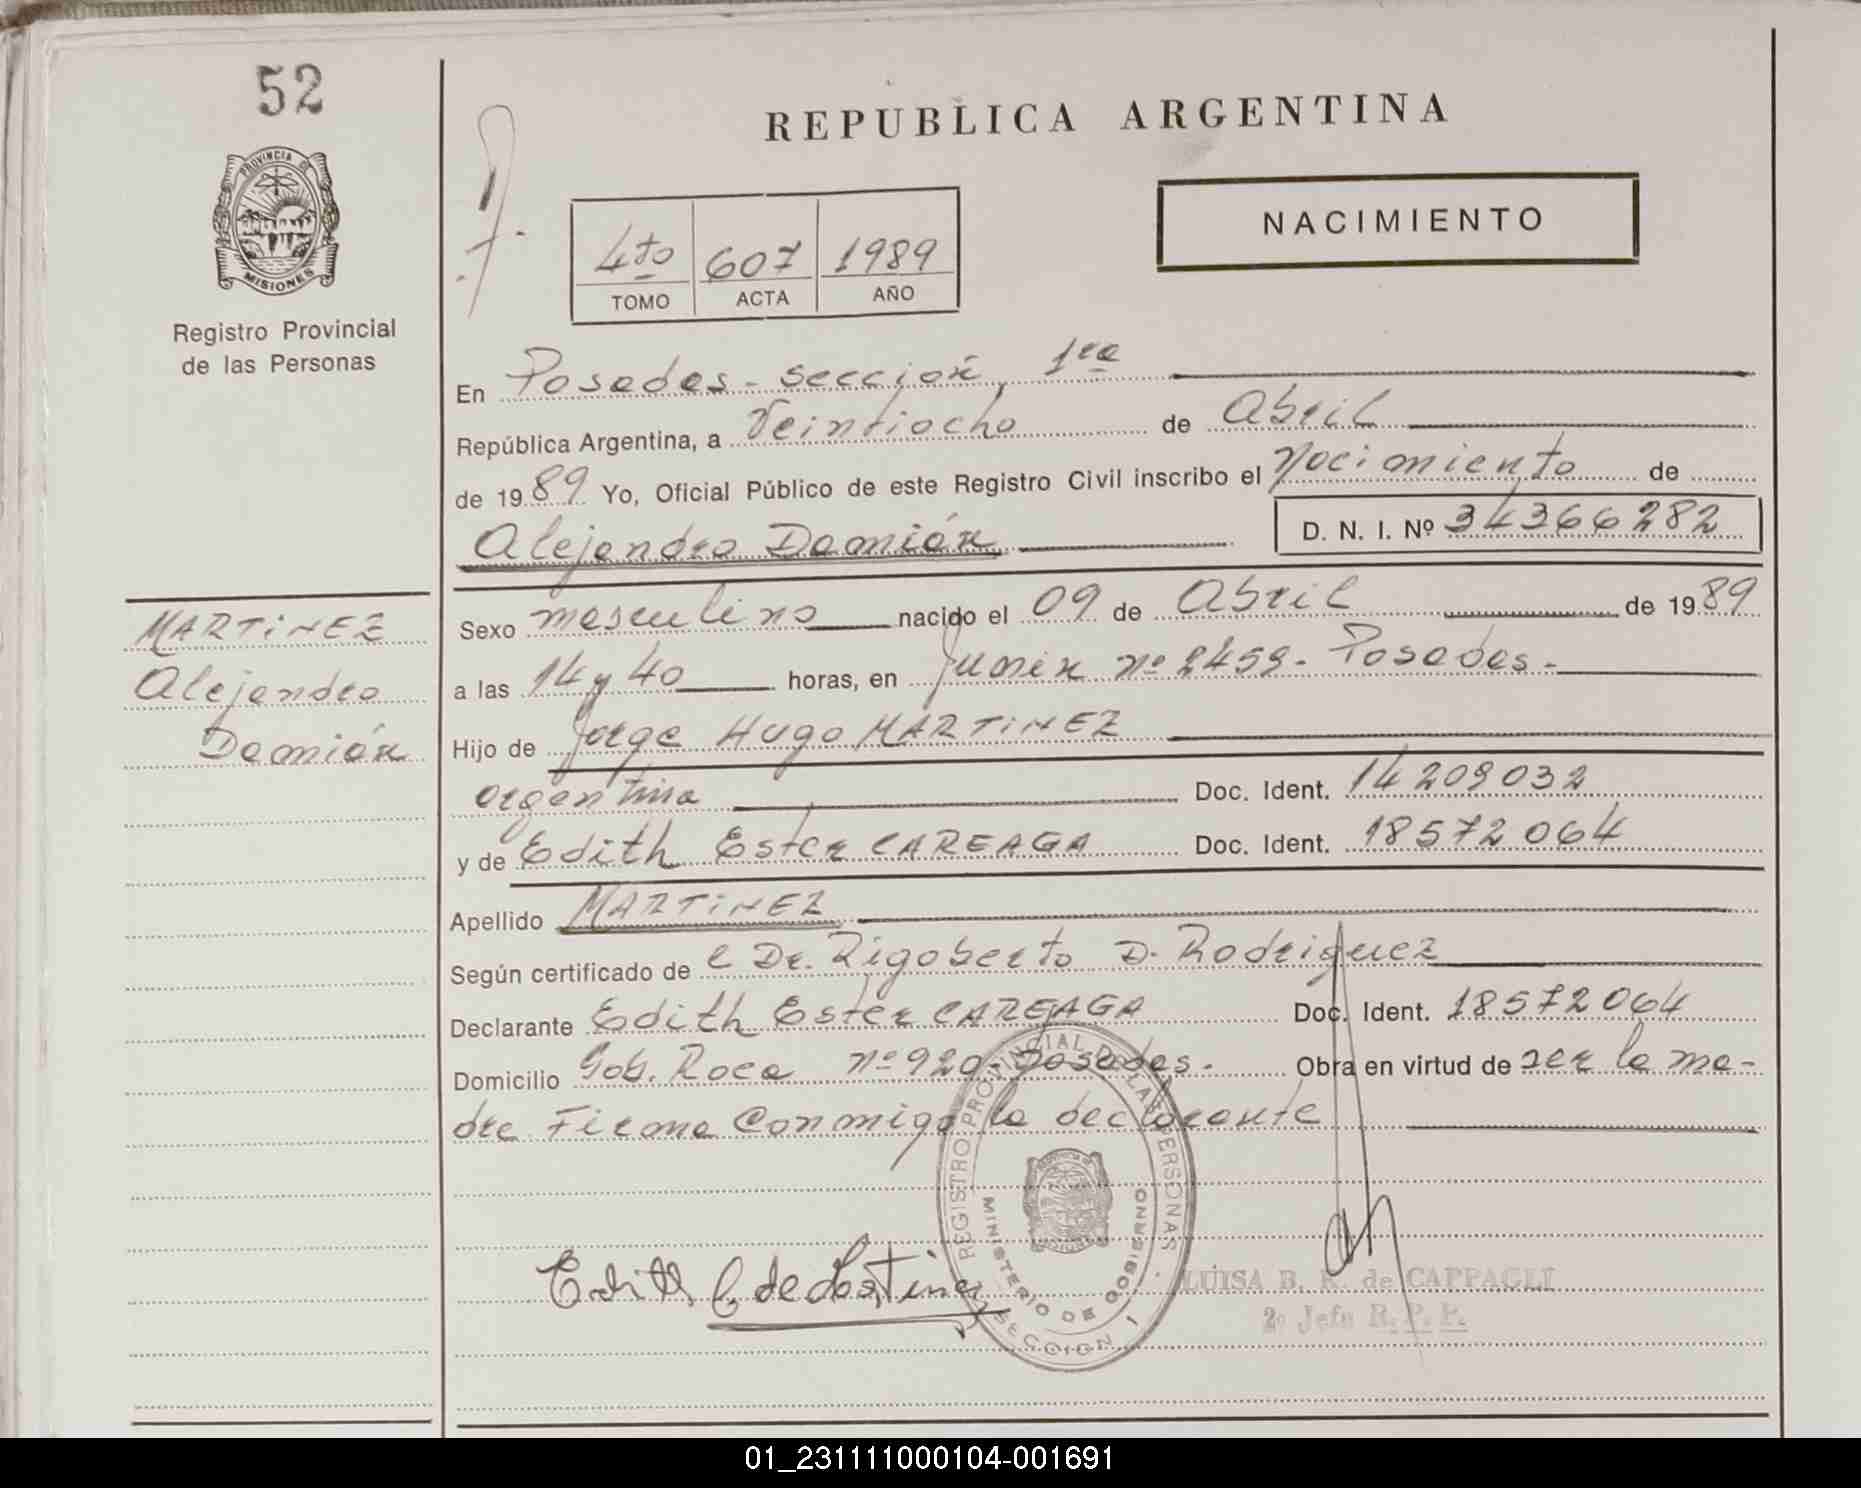 52
PROVINCIA DE
MISIONES
Registro Provincial
de las Personas
MARTiNEZ
Alejandro
Damián
REPUBLICA ARGENTINA
4to 607 1989
TOMO ACTA AÑO
NACIMIENTO
En Posadas - sección, 1ra
República Argentina, a Veintiocho de Abril
de 1989 Yo, Oficial Público de este Registro Civil inscribo el Nacimiento de
Alejandro Damián D. N. I. Nº 34366282
Sexo masculino nacido el 09 de Abril de 1989
a las 14 y 40 horas, en Junin nº 2459 - Posadas -
Hijo de Jorge Hugo MARTiNEZ
argentina Doc. Ident. 14209032
y de Edith Ester CAREAGA Doc. Ident. 18572064
Apellido MARTiNEZ
Según certificado de l Dr. Rigoberto D. Rodriguez
Declarante Edith Ester CAREAGA Doc. Ident. 18572064
Domicilio Gob. Roca nº 920 - Posadas - Obra en virtud de ser la ma-
dre Firma Conmigo la declarante
REGISTRO PROVINCIAL DE LAS PERSONAS
MINISTERIO DE GOBIERNO
SECCION 1
Edith C. de Martinez
LUISA B. R. de CAPPAGLI
2º Jefe R. P. P.
01_231111000104-001691